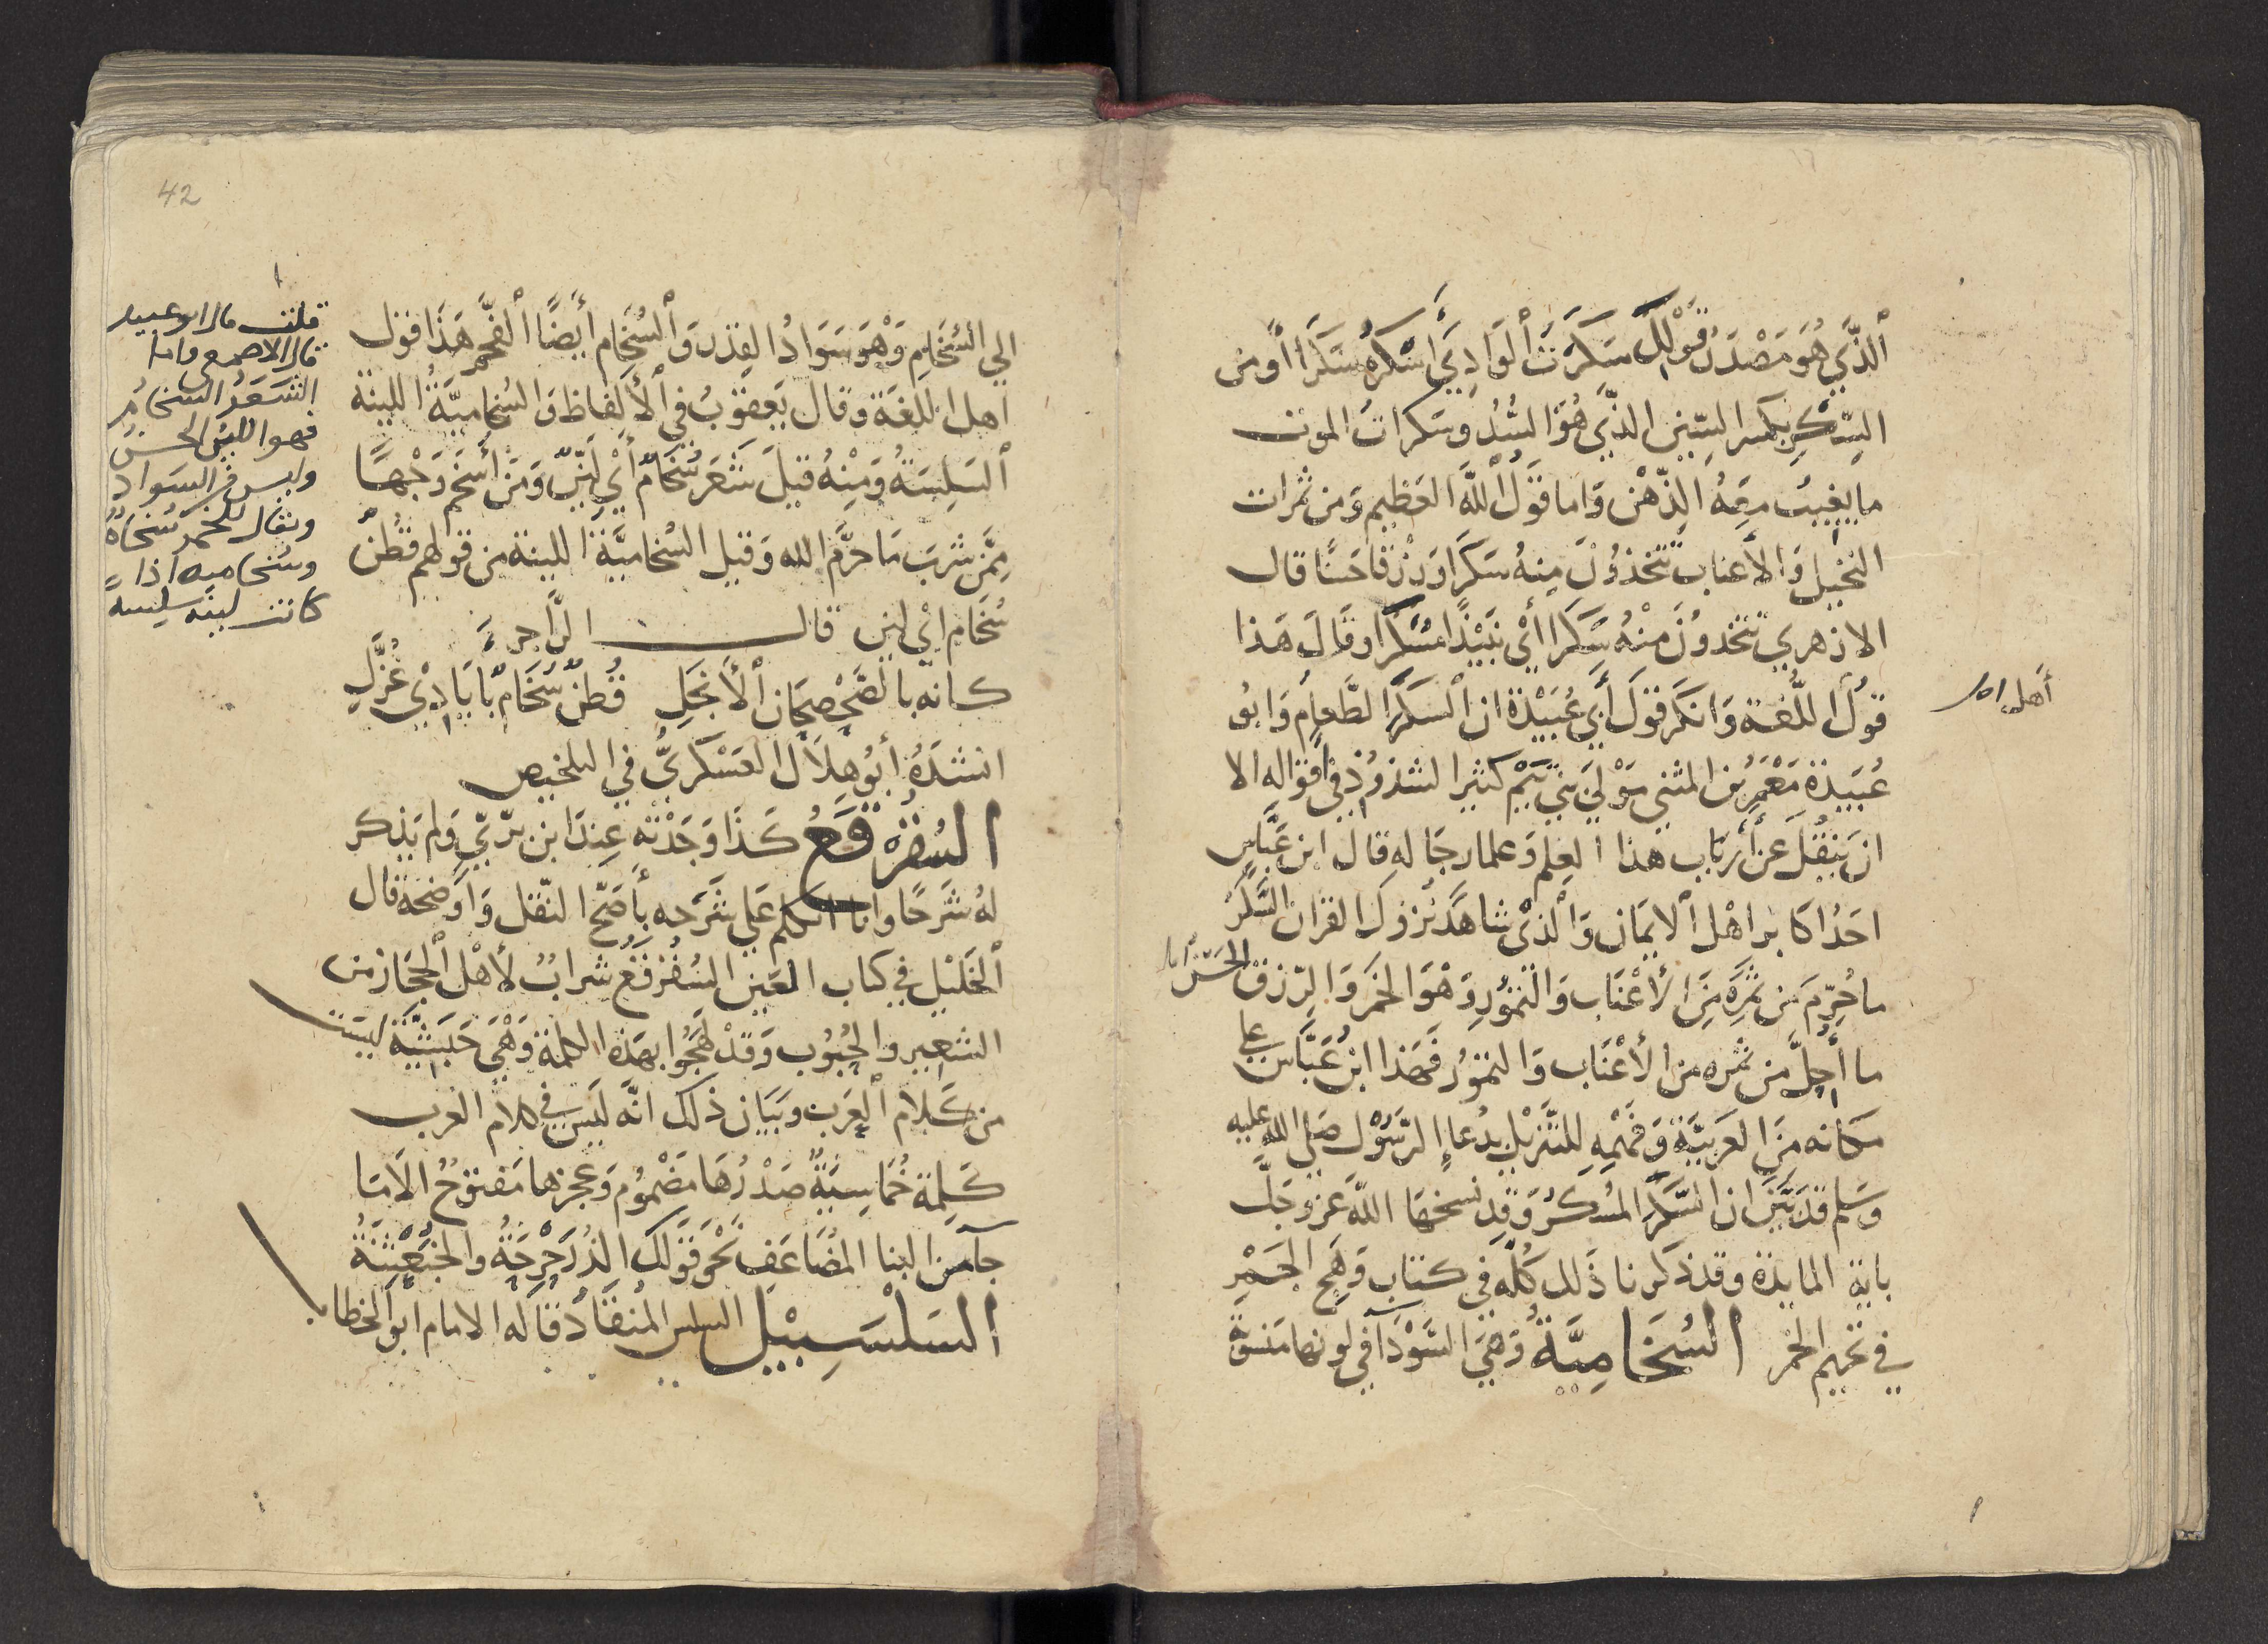 ٱلذَّي هُوَ مَصْدَرُ قَوْلِكَ سَكَرْتُ ٱلوَادِيَ أَسْكُرُهُ سَكَرًا أومن
السِّكْرِ بكسر السّين الذَّي هُوَ السُّدُ وسكراتُ الموت
ما يغيبُ معِهُ الذّهْن وَاما قَولُ ٱللَّه العَظيم وَمن ثمرات
النخيل وَالأعناب تتخذوُنَ مِنهُ سَكَرًا وَرزْقا حَسنًا قال
الازهري تتخدوُنَ مِنْهُ سَكَرا أيْ نَبيْذًا مُسْكرا وقَالَ هَذا
قوْل اللُّغة وَانكَر قوْلَ أَبي عُبَيْدة ان ٱلسَكَرَ الطَّعام وَابوُ
أهل
عُبَيدة مَعْمَر بن المثنى مَوْلَي بَني تيْم كثير الشذوُذ في اقواله الا
ان يَنقُلَ عن أَرْبَاب هذا العِلم وَعلما رجَاله قال ابن عَبَّاسٍ
احَدُ اكابر اهْل ٱلايمَان وَٱلذيْ شاهَدَ نُزوُل القران السَّكَرُ
ما حُرِّمَ من ثمَرِه مِنَ الأعْنَاب وَالتموُر وَهْوَ الخمَر وَالِرّزق الحَسَنُ
ما أُحِلَّ من ثمره من الأعْنَاب وَالتموُر فَهَذا ابنُ عَبَّاس على
مكانه مِنَ العَربيَّة وَفَهْمِهِ للتَّنزيْل بدُعاءِ الرّسَوْل صَلى الله عليه
وَسَلم قد بَيَّن ان السَّكَر المُسْكرُ وَقد نسخهَا اللّه عز وجَلَّ
باية المايدة وقد ذكرنا ذَلك كلّه في كتاب وَهَج الجَمْر
في تحريم الخمر السُخَامِيَّةُ وَهيَ السَّوْدَآ في لونها مَنسوبة
42
الي السُّخَامِ وَهْوَ سَوَادُ القِدْر وَٱلسُّخَام أيضًا ٱلفَحْم هَذَا قول
اهل اللغَة وقال يَعقوبُ في ٱلألفاظ وَالسُخاميَّةُ اللينة
ٱلسَلِسَةُ وَمِنْهُ قيلَ شَعَر سُخَامٌ أيْ لَيّنٌ وَمَنْ أسْخَم وَجْهًا
مِمَّن شربَ مَا حرَّم الله وَقيل السُخاميَّة اللينة من قولهم قطنٌ
سُخَام ايْ لين قالــــــ الرَّاجزُ
كانه بالصَّحْصحَان ٱلأنجَلِ قُطنٌ سُخَامٌ بأيَادِيْ غُزَّلِ
انشدَهُ أبُو هِلاَل العَسْكَريُّ في التلخيص
السُقُرْقَعُ كَذَا وَجَدْته عِندَ ابن بَرّيّ وَلم يَذكر
لهُ شَرحًا وانا اتكلم عَلي شَرَحه بأصَحّ النّقل وَاوضحة قال
ٱلخَليْل في كتاب العَين السُقُرقَع شَرابٌ لأهْل ٱلحِجَاز من
الشعير والحُبُوب وَقَدْ لهَجُوا بهَذه الكلمة وَهْيَ حَبَشِيَّة ليسَت
من كَلام ٱلعَرب وبَيَان ذلك انَّه لَيسَ في كلام العَرب
كَلِمَة خُمَاسِيَةٌ صَدْرُهَا مَضْمُومُ وَعجزها مَفتوُحُ الاَ مَا
جآ من البنا المُضَاعَف نحْوَ قوَلك الذُرَحْرَحَةُ والخبَعْثَنَةُ
السَلْسَبِيْل السلس المُنقَادُ قاله الامام ابو الخطاب
قلت قال ابو عبيد
قال الاصمعي واما
الشَعَرُ السُخامُ
فهو اللين الحَسنُ
وليس في السَواد
ويقال للخمر سُخامٌ
وسُخاميه اذا
كانت لينه سلسه